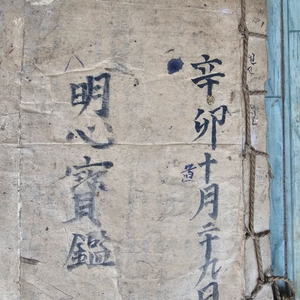 辛卯十月二十九日
明心寶鑑